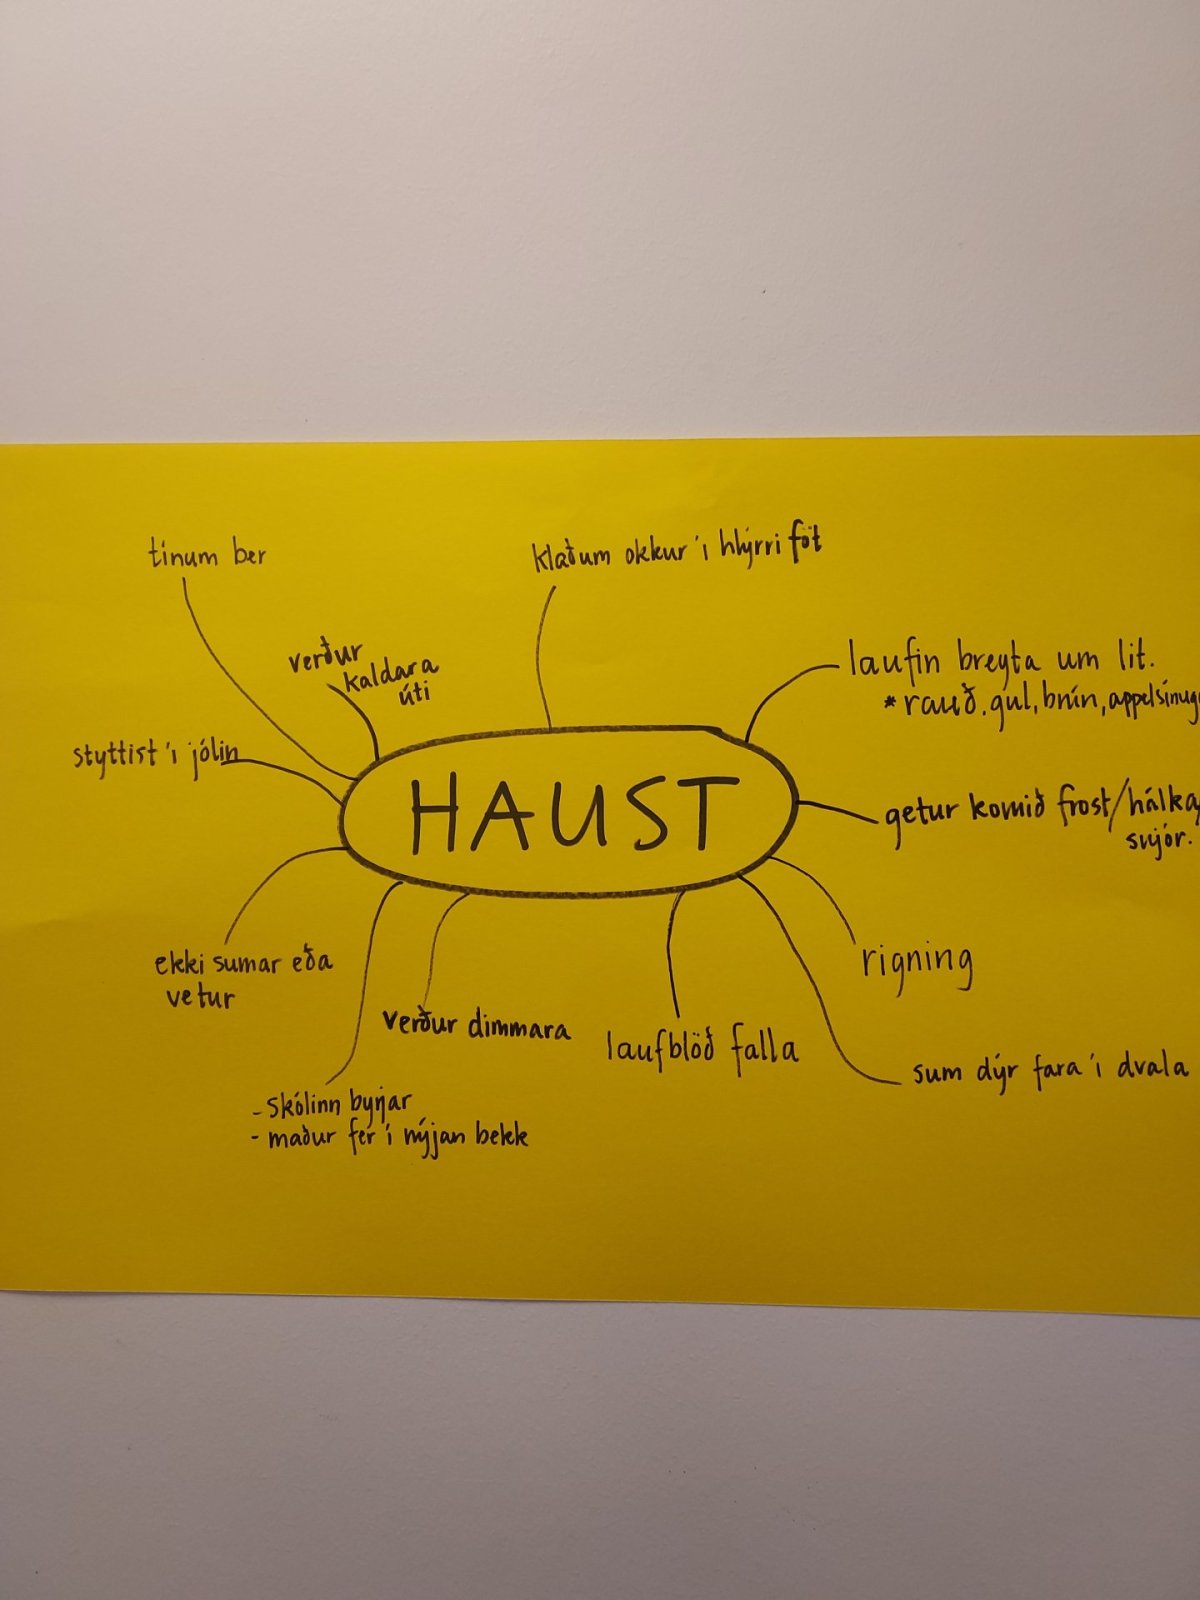 tínum ber
klæðum okkur í hlýrri föt
verður
kaldara
úti
laufin breyta um lit.
*rauð, gul, brún, appelsínug
styttist í jólin
HAUST
getur komið frost/hálka,
snjór.
ekki sumar eða
vetur
rigning
verður dimmara
laufblöð falla
sum dýr fara í dvala
- Skólinn byrjar
- maður fer í nýjan bekk